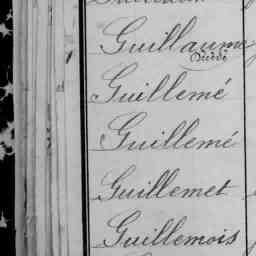 Guillaume
Guillemé
Guillemé
Guillemet
Guillemois